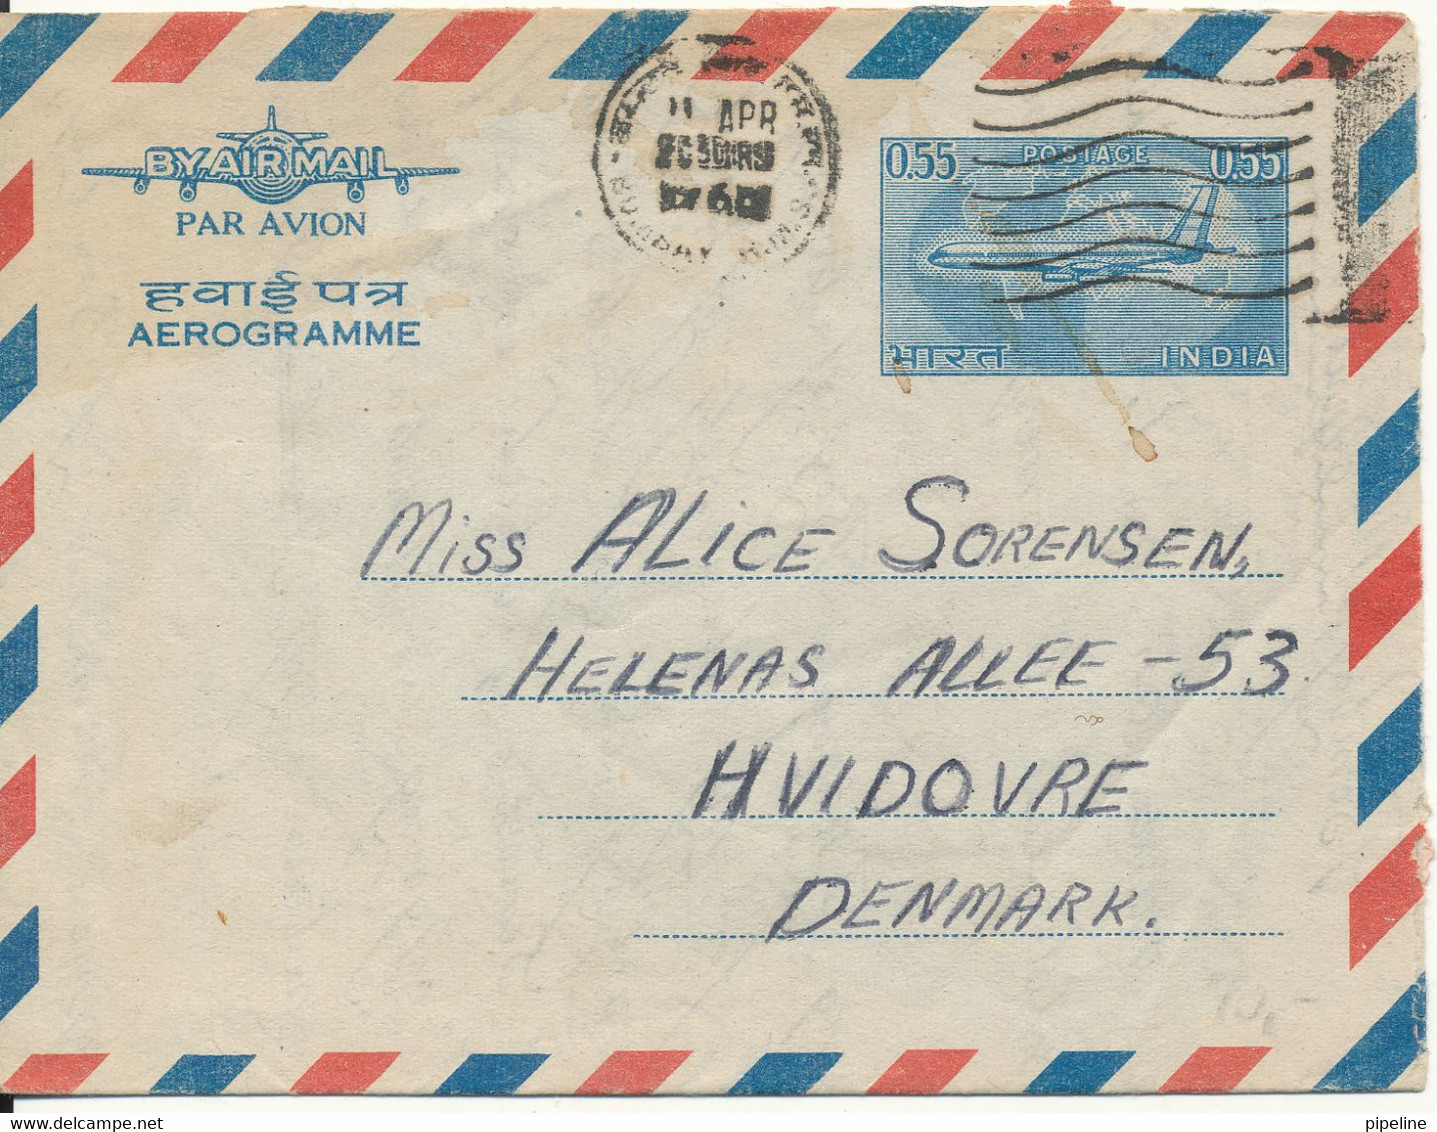 BY AIR MAIL
PAR AVION
हवाई पत्र
AEROGRAMME
11 APR
BOMBAY
0.55 POSTAGE 0.55
भारत INDIA
Miss ALICE SORENSEN,
HELENAS ALLEE - 53
HVIDOVRE
DENMARK.
pipeline